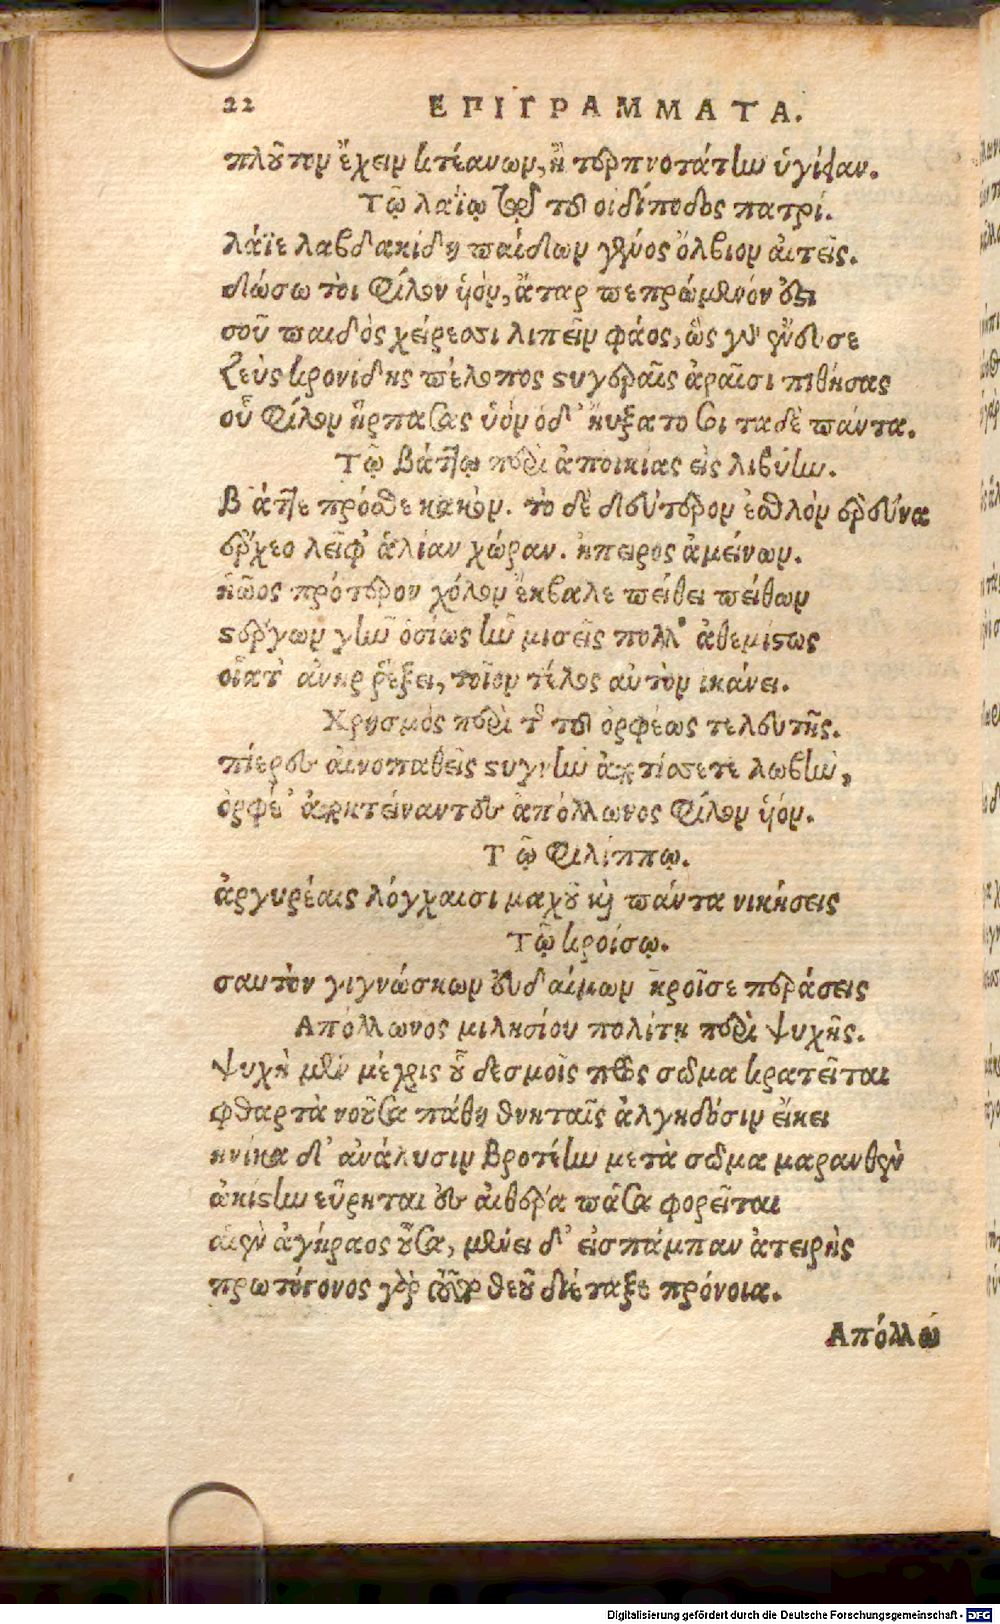 22 ΕΠΙΓΡΑΜΜΑΤΑ.
πλοῦτον ἔχειν κτεάνων, ἢ τερπνοτάτην ὑγίειαν.
Τῷ λαΐῳ τῷ τοῦ οἰδίποδος πατρί.
λάϊε λαβδακίδη παίδων γένος ὄλβιον αἰτεῖς.
δώσω τοι φίλον ὑόν, ἄταρ πεπρώμενόν ὅξι
σοῦ παιδὸς χείρεσσι λιπεῖν φάος, ὣς γὰρ ἔνευσε
ζεὺς κρονίδης πέλοπος στυγεραῖς ἀραῖσι πιθήσας
οὗ φίλον ἥρπασας ὑὸν ὁ δ' ηὔξατο σοι ταδὲ πάντα.
Τῷ βάττῳ περὶ ἀποικίας εἰς λιβύην.
Βάττε πρόσθε κακὸν. τὸ δὲ δεύτερον ἐσθλὸν ἐρεύνα
ἔρχεο λεῖφ' ἁλίαν χώραν. ἤπειρος ἀμείνων.
ἠῶος πρότερον χόλον ἔκβαλε πείθει πείθων
στέργων γῆν ὁσίως ἣν μισεῖς πολλ' ἀθεμίστως
οἷατ' ἀνὴρ ῥέξει, τοῖον τέλος αὐτὸν ἱκάνει.
Χρησμὸς περὶ τῆς τοῦ ὀρφέως τελευτῆς.
πίερες αἰνοπαθεῖς στυγνὴν ἀποτίσετε λώβην,
ὀρφέ' ἀποκτείναντες ἀπόλλωνος φίλον ὑόν.
Τῷ φιλίππῳ.
ἀργυρέαις λόγχαισι μαχοῦ καὶ πάντα νικήσεις
Τῷ κροίσῳ.
σαυτὸν γιγνώσκων εὐδαίμων κροῖσε περάσεις
Απόλλωνος μιλησίου πολίτῃ περὶ ψυχῆς.
Ψυχὴ μὲν μέχρις οὗ δεσμοῖς πρὸς σῶμα κρατεῖται
φθαρτὰ νοοῦσα πάθη θνηταῖς ἀλγηδόσιν εἴκει
ἡνίκα δ' ἀνάλυσιν βροτέην μετὰ σῶμα μαρανθὲν
ὠκίστην εὕρηται ἐς αἰθέρα πᾶσα φορεῖται
αἰὲν ἀγήραος οὖσα, μένει δ' εἰς πάμπαν ἀτειρὴς
πρωτόγονος γὰρ θεοῦ διέταξε πρόνοια.
Απόλλω